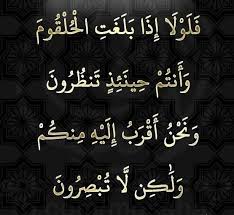 فَلَوْلَا إِذَا بَلَغَتِ الْحُلْقُومَ
وَأَنتُمْ حِينَئِذٍ تَنظُرُونَ
وَنَحْنُ أَقْرَبُ إِلَيْهِ مِنكُمْ
وَلَٰكِن لَّا تُبْصِرُونَ